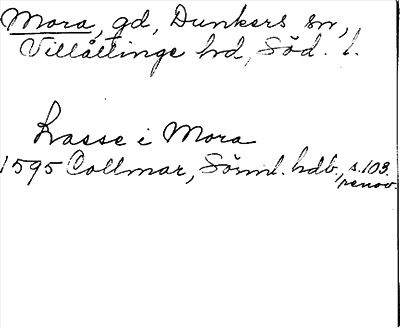 Mora, gd, Dunkers sn,
Villåttinge hd, Söd. l.
Lasse i Mora
1595 Collmar, Sörml. hdb., s. 103.
renov.